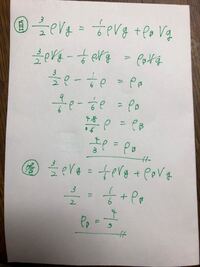 自 3/2 ρVg = 1/6 ρVg + ρB Vg
3/2 ρVg - 1/6 ρVg = ρB Vg
3/2 ρ - 1/6 ρ = ρB
9/6 ρ - 1/6 ρ = ρB
ρ = ρB
4/3 ρ = ρB
答 3/2 ρVg = 1/6 ρVg + ρB Vg
3/2 = 1/6 + ρB
ρB = 4/3